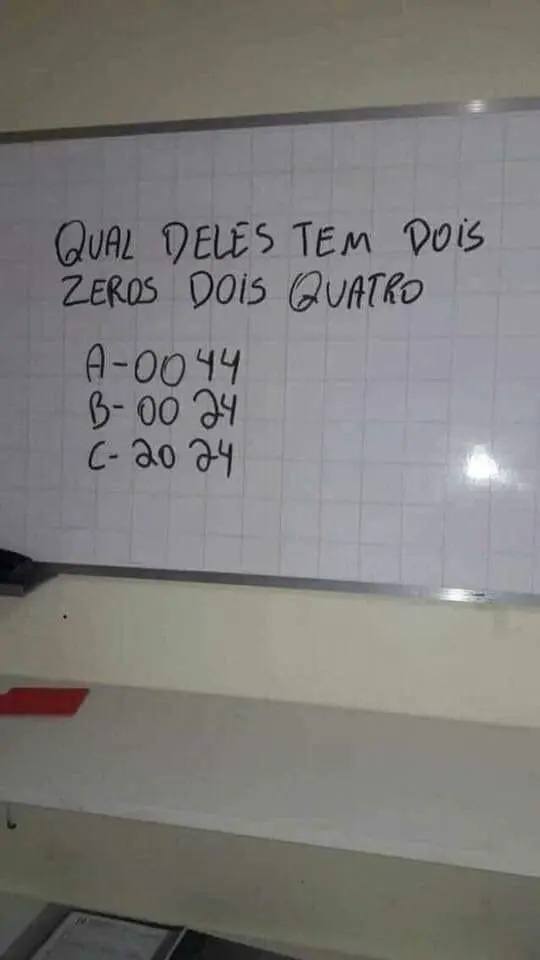 QUAL DELES TEM DOIS
ZEROS DOIS QUATRO
A-00 44
B-00 24
C-20 24